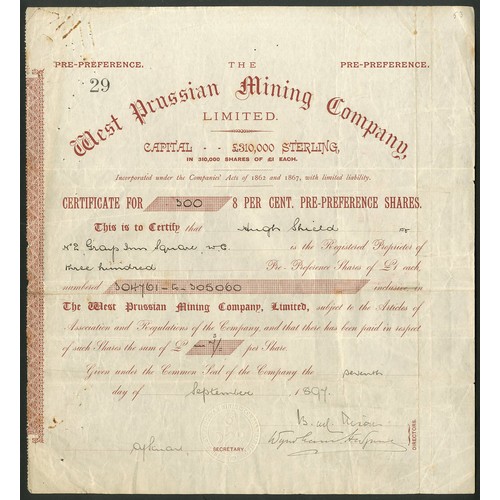 PRE-PREFERENCE. THE PRE-PREFERENCE.
29
West Prussian Mining Company,
LIMITED.
CAPITAL - - £310,000 STERLING,
IN 310,000 SHARES OF £1 EACH.
Incorporated under the Companies' Acts of 1862 and 1867, with limited liability.
CERTIFICATE FOR 300 8 PER CENT. PRE-PREFERENCE SHARES.
This is to Certify that Hugh Shield
No 2 Grays Inn Square, W.C. is the Registered Proprietor of
three hundred Pre-Preference Shares of £1 each,
numbered 304761-to-305060 inclusive in
The West Prussian Mining Company, Limited, subject to the Articles of
Association and Regulations of the Company, and that there has been paid in respect
of such Shares the sum of £ per Share.
Given under the Common Seal of the Company the seventh
day of September 1897.
DIRECTORS.
SECRETARY.